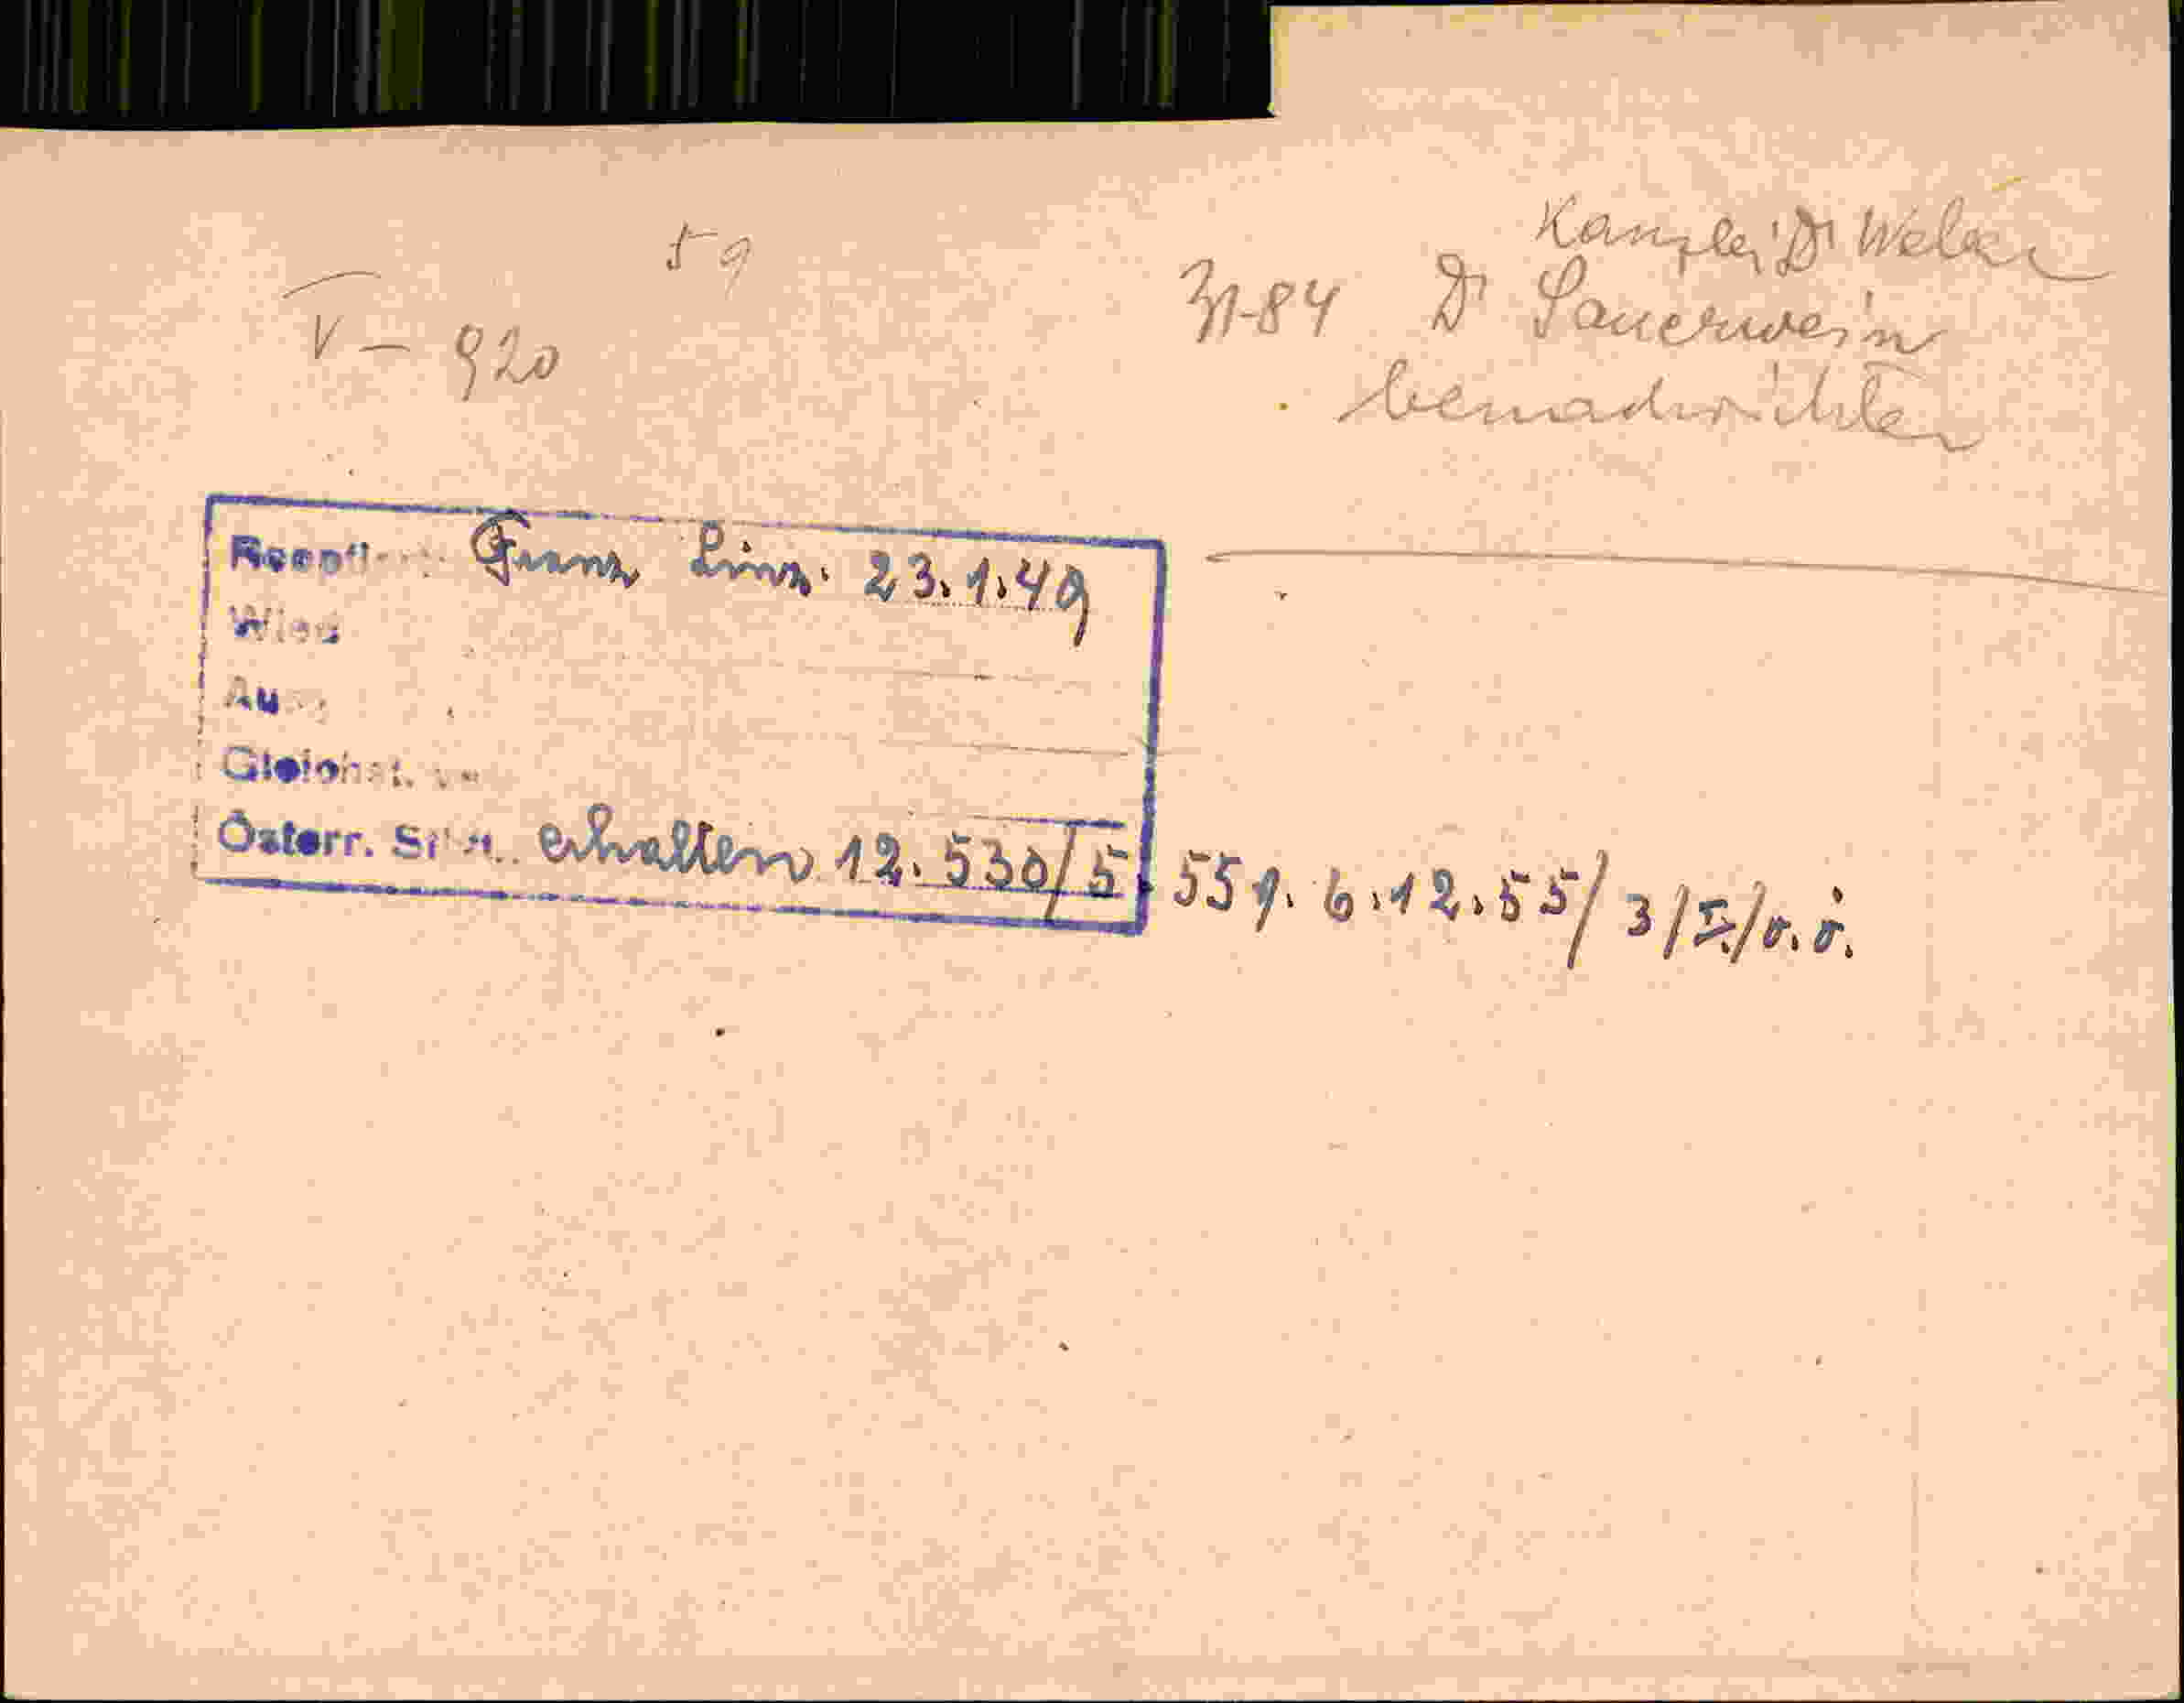 59
V - 920
Kanzlei Dr Weber
31-84 Dr Sauerwein
benachrichten
Franz Linz. 23.1.49
Wien
Gleichst.
Österr. St. erhalten 12.530/5 559. 6.12.55/3/I./o.ö.